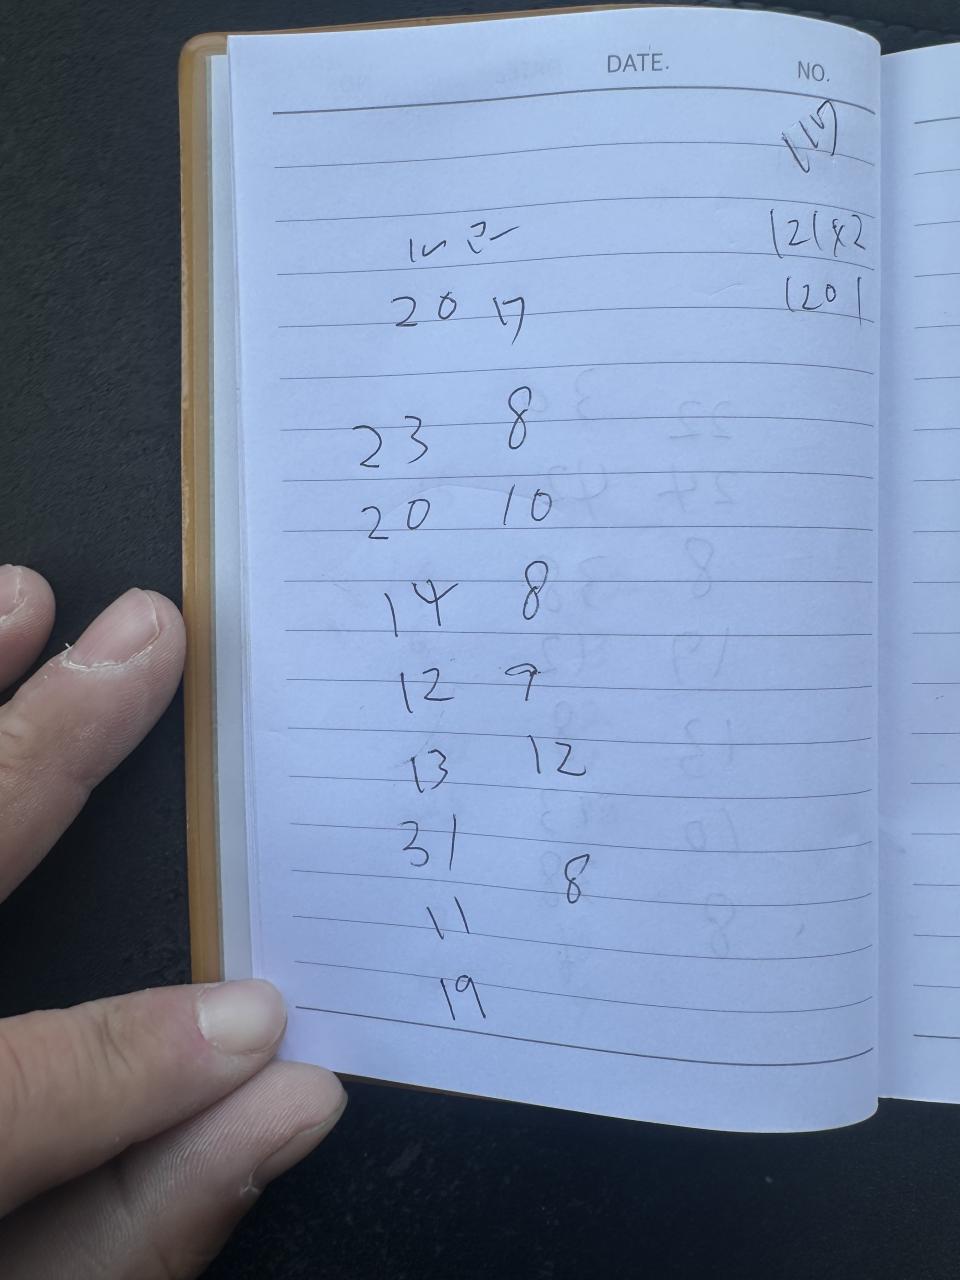 DATE. NO.
117
12142
1201
20 17
23 8
20 10
14 8
12 9
13 12
31
8
11
19